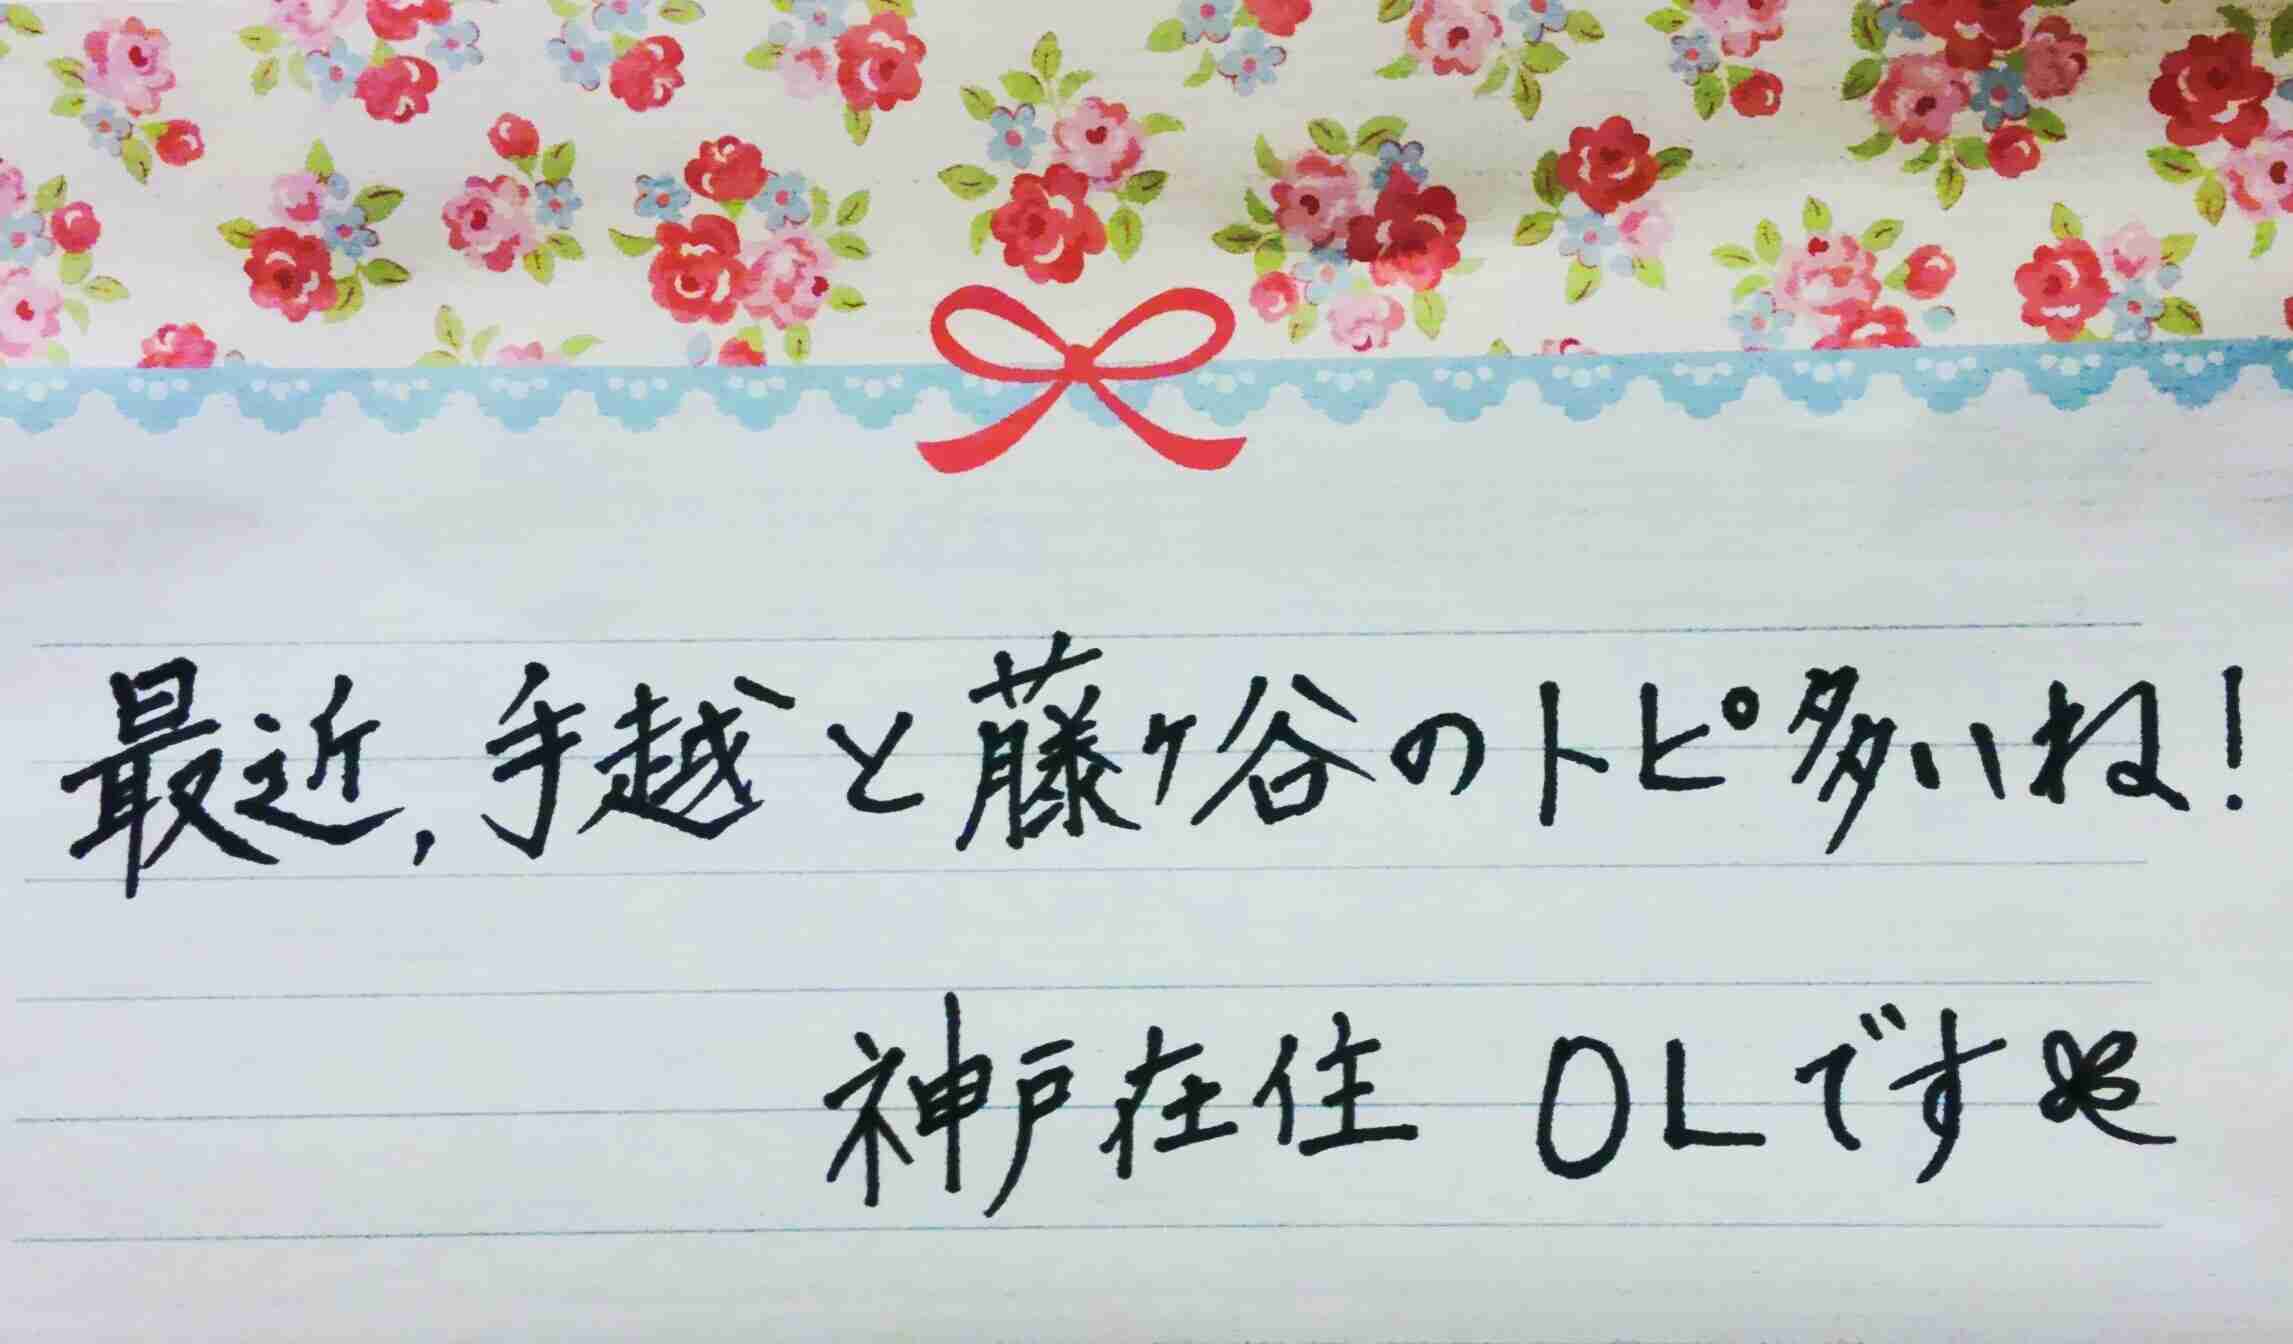 最近,手越と藤ヶ谷のトピ多いね!
神戸在住 OLです